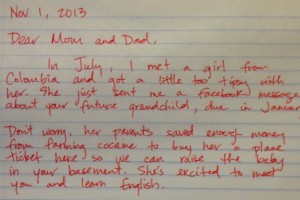 Nov 1, 2013
Dear Mom and Dad,
In July, I met a girl from
Colombia and got a little too tipsy with
her. She just sent me a facebook message
about your future grandchild, due in Januar
Don't worry, her parents saved enough money
from farming cocaine to buy her a plane
ticket here so we can raise the baby
in your basement. She's excited to meet
you and learn English.